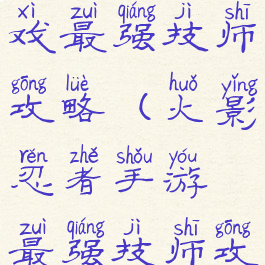 xì zuì qiáng jì shī
戏最强技师
gōng lüè huǒ yǐng
攻略(火影
rěn zhě shǒu yóu
忍者手游
zuì qiáng jì shī gōng
最强技师攻